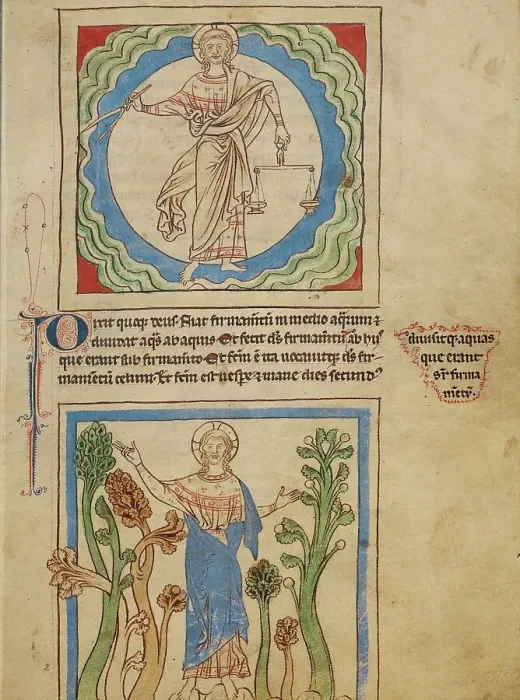 Dixit quoq; deus. Fiat firmam̄tū in medio aq̄rum ⁊
diuidat aq̄s ab aquis. Et fecit d̄s firmam̄tū. ab hys
que erant sub firmam̄to. Et fc̄m ē ita uocauitq; d̄s fir-
mamētū celum. Et fc̄m est uesp̄e ⁊ mane dies secund⁹
diuisitq; aquas
que erant
sr̄ firma
mētū.